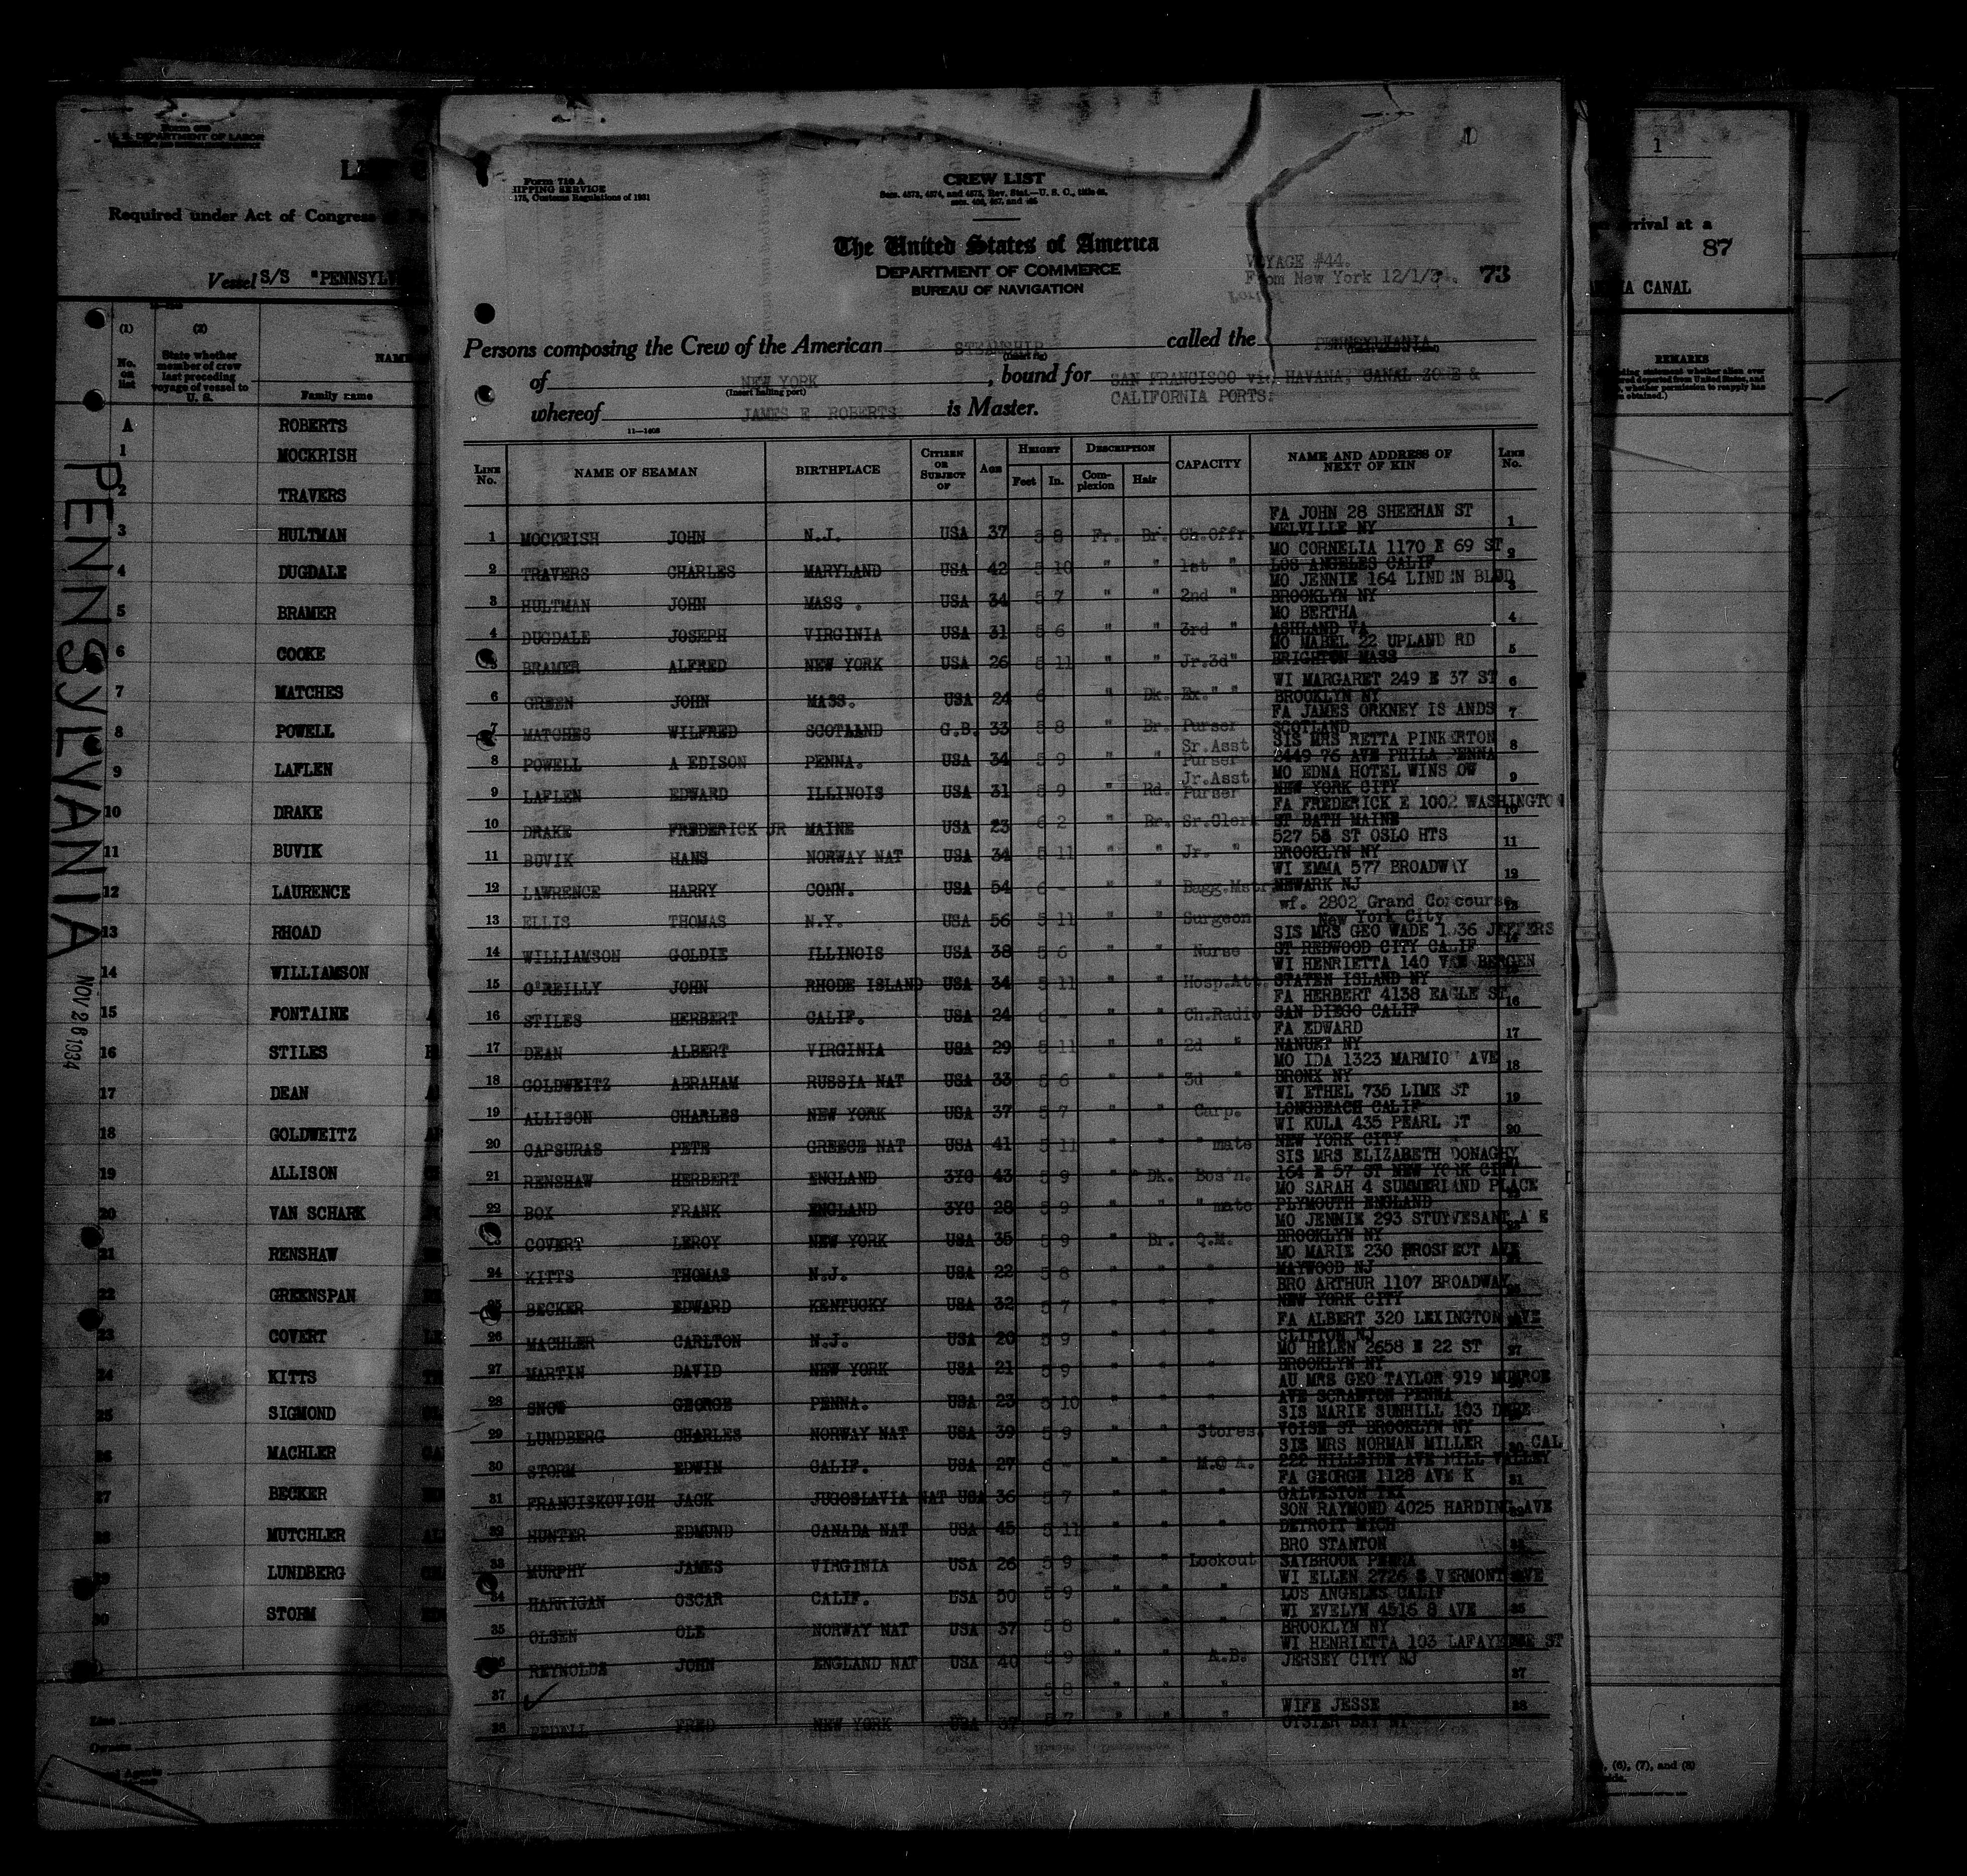 U. S. DEPARTMENT OF LABOR
Required under Act of Congress
Vessel S/S "PENNSYLV
(1) (2)
No. on list
State whether member of crew last preceding voyage of vessel to U. S.
NAME
Family name
A ROBERTS
1 MOCKRISH
2 TRAVERS
3 HULTMAN
4 DUGDALE
5 BRAMER
6 COOKE
7 MATCHES
8 POWELL
9 LAFLEN
10 DRAKE
11 BUVIK
12 LAURENCE
13 RHOAD
14 WILLIAMSON
15 FONTAINE
16 STILES
17 DEAN
18 GOLDWEITZ
19 ALLISON
20 VAN SCHARK
21 RENSHAW
22 GREENSPAN
23 COVERT
24 KITTS
25 SIGMOND
26 MACHLER
27 BECKER
28 MUTCHLER
29 LUNDBERG
30 STORM
PENNSYLVANIA
NOV 28 1934
Form 710 A
HIPPING SERVICE
175, Customs Regulations of 1931
CREW LIST
Secs. 4573, 4574, and 4575, Rev. Stat.—U. S. C., title 46,
The United States of America
DEPARTMENT OF COMMERCE
BUREAU OF NAVIGATION
VOYAGE #44.
From New York 12/1/34. 73
Persons composing the Crew of the American STEAMSHIP called the PENNSYLVANIA
(Insert rig)
of NEW YORK , bound for SAN FRANCISCO via HAVANA, CANAL ZONE &
(Insert hailing port)
CALIFORNIA PORTS.
whereof JAMES E ROBERTS is Master.
11—1408
LINE No. NAME OF SEAMAN BIRTHPLACE CITIZEN OR SUBJECT OF AGE HEIGHT Feet In. DESCRIPTION Complexion Hair CAPACITY NAME AND ADDRESS OF NEXT OF KIN LINE No.
1 MOCKRISH JOHN N.J. USA 37 5 8 Fr. Br. Ch.Offr. FA JOHN 28 SHEEHAN ST MELVILLE NY 1
2 TRAVERS CHARLES MARYLAND USA 42 5 10 " " 1st " MO CORNELIA 1170 E 69 ST LOS ANGELES CALIF 2
3 HULTMAN JOHN MASS . USA 34 5 7 " " 2nd " MO JENNIE 164 LINDEN BLVD BROOKLYN NY 3
4 DUGDALE JOSEPH VIRGINIA USA 31 5 6 " " 3rd " MO BERTHA ASHLAND VA 4
5 BRAMER ALFRED NEW YORK USA 26 5 11 " " Jr.3d" MO MABEL 22 UPLAND RD BRIGHTON MASS 5
6 GREEN JOHN MASS. USA 24 6 " Dk. Ex." " WI MARGARET 249 E 37 ST BROOKLYN NY 6
7 MATCHES WILFRED SCOTLAND G.B. 33 5 8 " Br. Purser FA JAMES ORKNEY IS ANDS SCOTLAND 7
8 POWELL A EDISON PENNA. USA 34 5 9 " " Sr.Asst. Purser SIS MRS RETTA PINKERTON 2449 76 AVE PHILA PENNA 8
9 LAFLEN EDWARD ILLINOIS USA 31 5 9 " Rd. Jr.Asst. Purser MO EDNA HOTEL WINS OW NEW YORK CITY 9
10 DRAKE FREDERICK JR MAINE USA 23 6 2 " Br. Sr.Clerk FA FREDERICK E 1002 WASHINGTON ST BATH MAINE 10
11 BUVIK HANS NORWAY NAT USA 34 5 11 " " Jr. " 527 58 ST OSLO HTS BROOKLYN NY 11
12 LAWRENCE HARRY CONN. USA 54 6 - " " Bagg.Mstr. WI EMMA 577 BROADWAY NEWARK NJ 12
13 ELLIS THOMAS N.Y. USA 56 5 11 " " Surgeon wf. 2802 Grand Concourse New York City 13
14 WILLIAMSON GOLDIE ILLINOIS USA 38 5 6 " " Nurse SIS MRS GEO WADE 1 36 JEFFERS ST REDWOOD CITY CALIF 14
15 O'REILLY JOHN RHODE ISLAND USA 34 5 11 " " Hosp.Att. WI HENRIETTA 140 VAN BERGEN STATEN ISLAND NY
16 STILES HERBERT CALIF. USA 24 6 - " " Ch.Radio FA HERBERT 4138 EAGLE ST SAN DIEGO CALIF 16
17 DEAN ALBERT VIRGINIA USA 29 5 11 " " 2d " FA EDWARD NANUET NY 17
18 GOLDWEITZ ABRAHAM RUSSIA NAT USA 33 5 6 " " 3d " MO IDA 1323 MARMION AVE BRONX NY 18
19 ALLISON CHARLES NEW YORK USA 37 5 7 " " Carp. WI ETHEL 735 LIME ST LONGBEACH CALIF 19
20 CAPSURAS PETE GREECE NAT USA 41 5 11 " " " mate WI KULA 435 PEARL ST NEW YORK CITY 20
21 RENSHAW HERBERT ENGLAND 3YG 43 5 9 " Dk. Bos'n. SIS MRS ELIZABETH DONAGHY 164 E 57 ST NEW YORK CITY
22 BOX FRANK ENGLAND 3YG 28 5 9 " " " mate MO SARAH 4 SUMMERLAND PLACE PLYMOUTH ENGLAND
23 COVERT LEROY NEW YORK USA 35 5 9 " Br. Q.M. MO JENNIE 293 STUYVESANT A E BROOKLYN NY
24 KITTS THOMAS N.J. USA 22 5 8 " " " MO MARIE 230 PROSPECT AVE MAYWOOD NJ
25 BECKER EDWARD KENTUCKY USA 32 5 7 " " " BRO ARTHUR 1107 BROADWAY NEW YORK CITY
26 MACHLER CARLTON N.J. USA 20 5 9 " " " FA ALBERT 320 LEXINGTON AVE CLIFTON NJ
27 MARTIN DAVID NEW YORK USA 21 5 9 " " " MO HELEN 2658 E 22 ST BROOKLYN NY 27
28 SNOW GEORGE PENNA. USA 23 5 10 " " " AU MRS GEO TAYLOR 919 MONROE AVE SCRANTON PENNA
29 LUNDBERG CHARLES NORWAY NAT USA 39 5 9 " " Stores. SIS MARIE SUNHILL 103 VOISE ST BROOKLYN NY
30 STORM EDWIN CALIF. USA 27 6 - " " M.O A. SIS MRS NORMAN MILLER CAL 222 HILLSIDE AVE MILL VALLEY 30
31 FRANCISKOVICH JACK JUGOSLAVIA NAT USA 36 5 7 " " " FA GEORGE 1128 AVE K GALVESTON TEX 31
32 HUNTER EDMUND CANADA NAT USA 45 5 11 " " " SON RAYMOND 4025 HARDING AVE DETROIT MICH
33 MURPHY JAMES VIRGINIA USA 26 5 9 " " Lookout BRO STANTON SAYBROOK PENNA
34 HARRIGAN OSCAR CALIF. USA 50 5 9 " " " WI ELLEN 2726 S VERMONT AVE LOS ANGELES CALIF
35 OLSEN OLE NORWAY NAT USA 37 5 8 " " " WI EVELYN 4516 8 AVE BROOKLYN NY 35
36 REYNOLDS JOHN ENGLAND NAT USA 40 5 9 " " A.B. WI HENRIETTA 103 LAFAYETTE ST JERSEY CITY NJ
37 5 8 " " " 37
38 BEDELL FRED NEW YORK USA 37 5 7 " " " WIFE JESSE OYSTER BAY NY 38
1
arrival at a
87
CANAL
REMARKS
(6), (7), and (8)